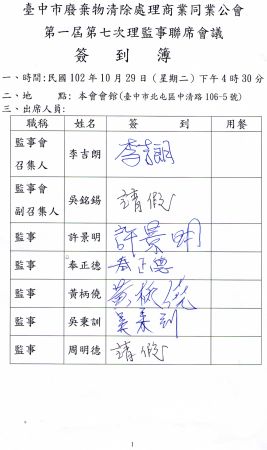 臺中市廢棄物清除處理商業同業公會
第一屆第七次理監事聯席會議
簽到簿
一、時間:民國 102 年 10 月 29 日 (星期二) 下午 4 時 30 分
二、地 點: 本會會館(臺中市北屯區中清路 106-5 號)
三、出席人員:
職稱 姓名 簽到 用餐
監事會召集人 李吉朗 李吉朗
監事會副召集人 吳銘錫 請假
監事 許景明 許景明
監事 秦正德 秦正德
監事 黃柄僥 黃柄僥
監事 吳秉訓 吳秉訓
監事 周明德 請假
1